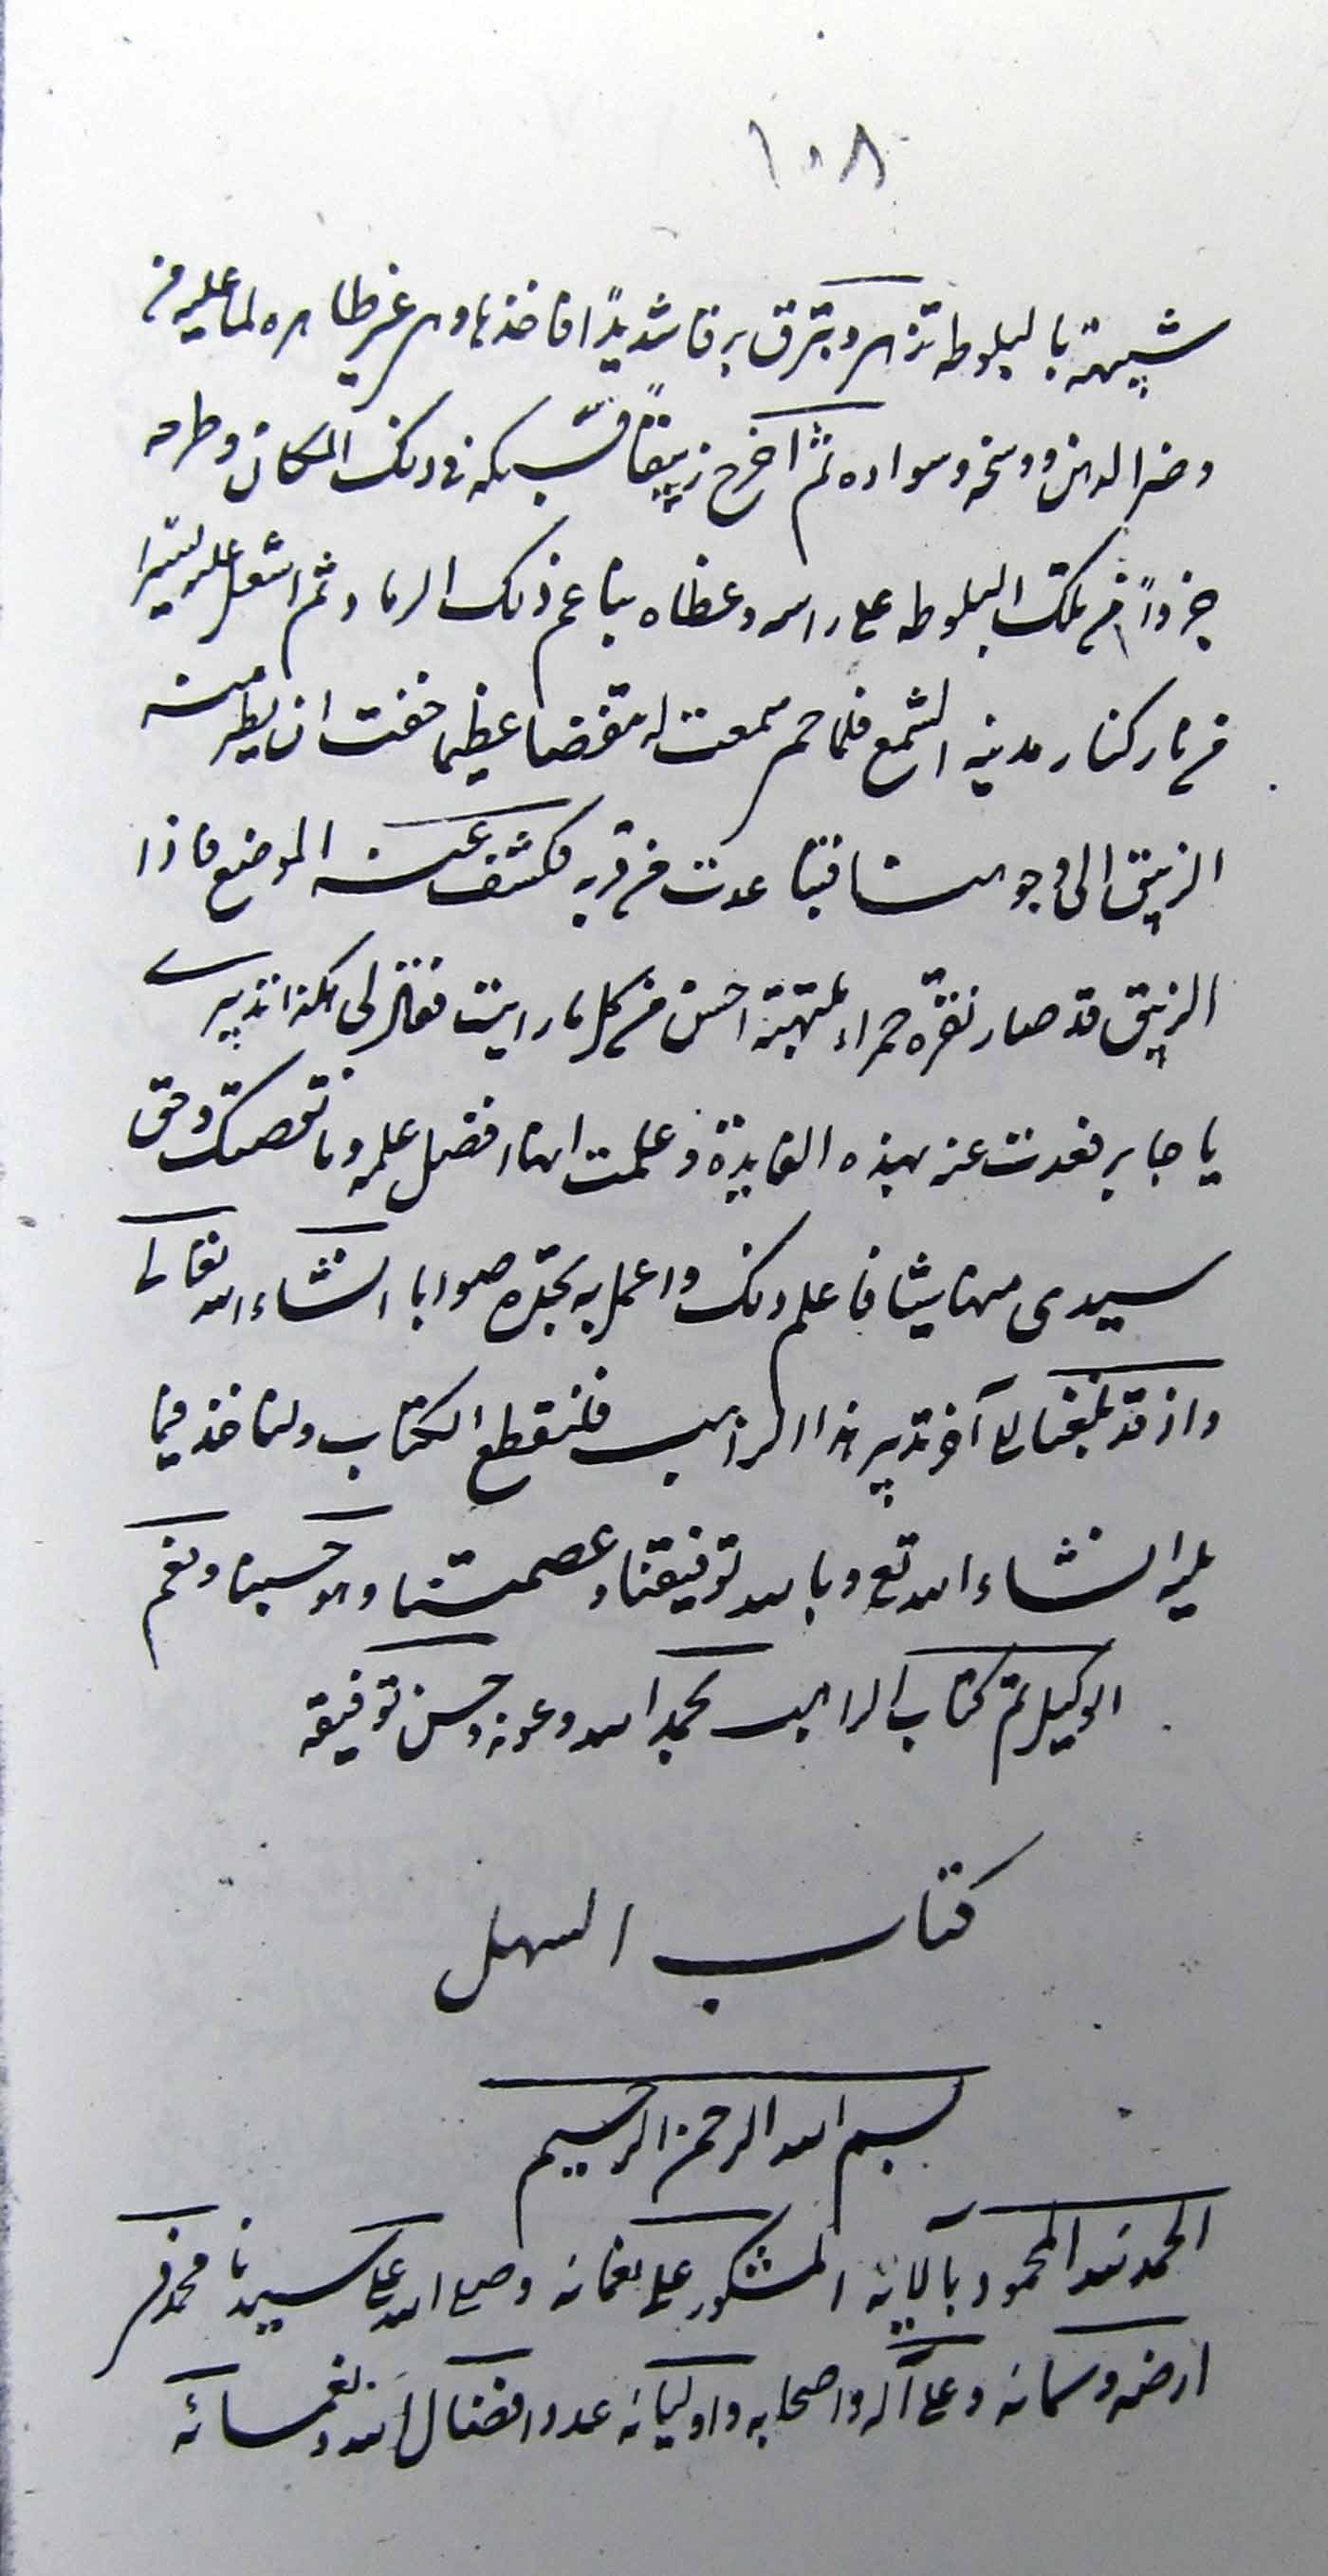 ١٠٨
شبيهة بالبلوطه تزهر وتبرق برقا شديدًا فاخذها وهى غير طاهره لما عليه من
وضر الدهن ووسخه وسواده ثم اخرج زيبقًا فسبكه فى ذلك المكان وطرحه
جزواً من تلك البلوطه على راسه وغطاه بناعم ذلك الرماد ثم اشعل عليه يسيرا
من نار كنار مدنيه الشمع فلما حمى سمعت له تنقضا عظيما خفت ان يطير منه
الزيبق الى وجوهنا فتباعدت من قربه فكشف عنه الموضع فاذا
الزيبق قد صار نقره حمراء ملتهبة احسن من كل ما رايت فقال لى هكذا تدبيرى
يا جابر فعدت عنه بهذه الفايدة وعلمت انها افضل علمه وما نقصتك وحق
سيدى منها شيئا فاعلم ذلك واعمل به تجده صوابا انشاء الله تعالى
واذ قد بلغنا الى آخر تدبير هذا الراهب فلنقطع الكتاب ولناخذ فيما
يليه انشاء الله تع وبالله توفيقنا وعصمتنا وهو حسبنا ونعم
الوكيل تم كتاب الراهب بحمد الله وعونه وحسن توفيقه
كتاب السهل
بسم الله الرحمن الرحيم
الحمد لله المحمود بآلايه المشكور على نعمائه وصلى الله على سيدنا محمد فى
ارضه وسمائه وعلى آله واصحابه واوليائه عدد افضال الله ونعمائه